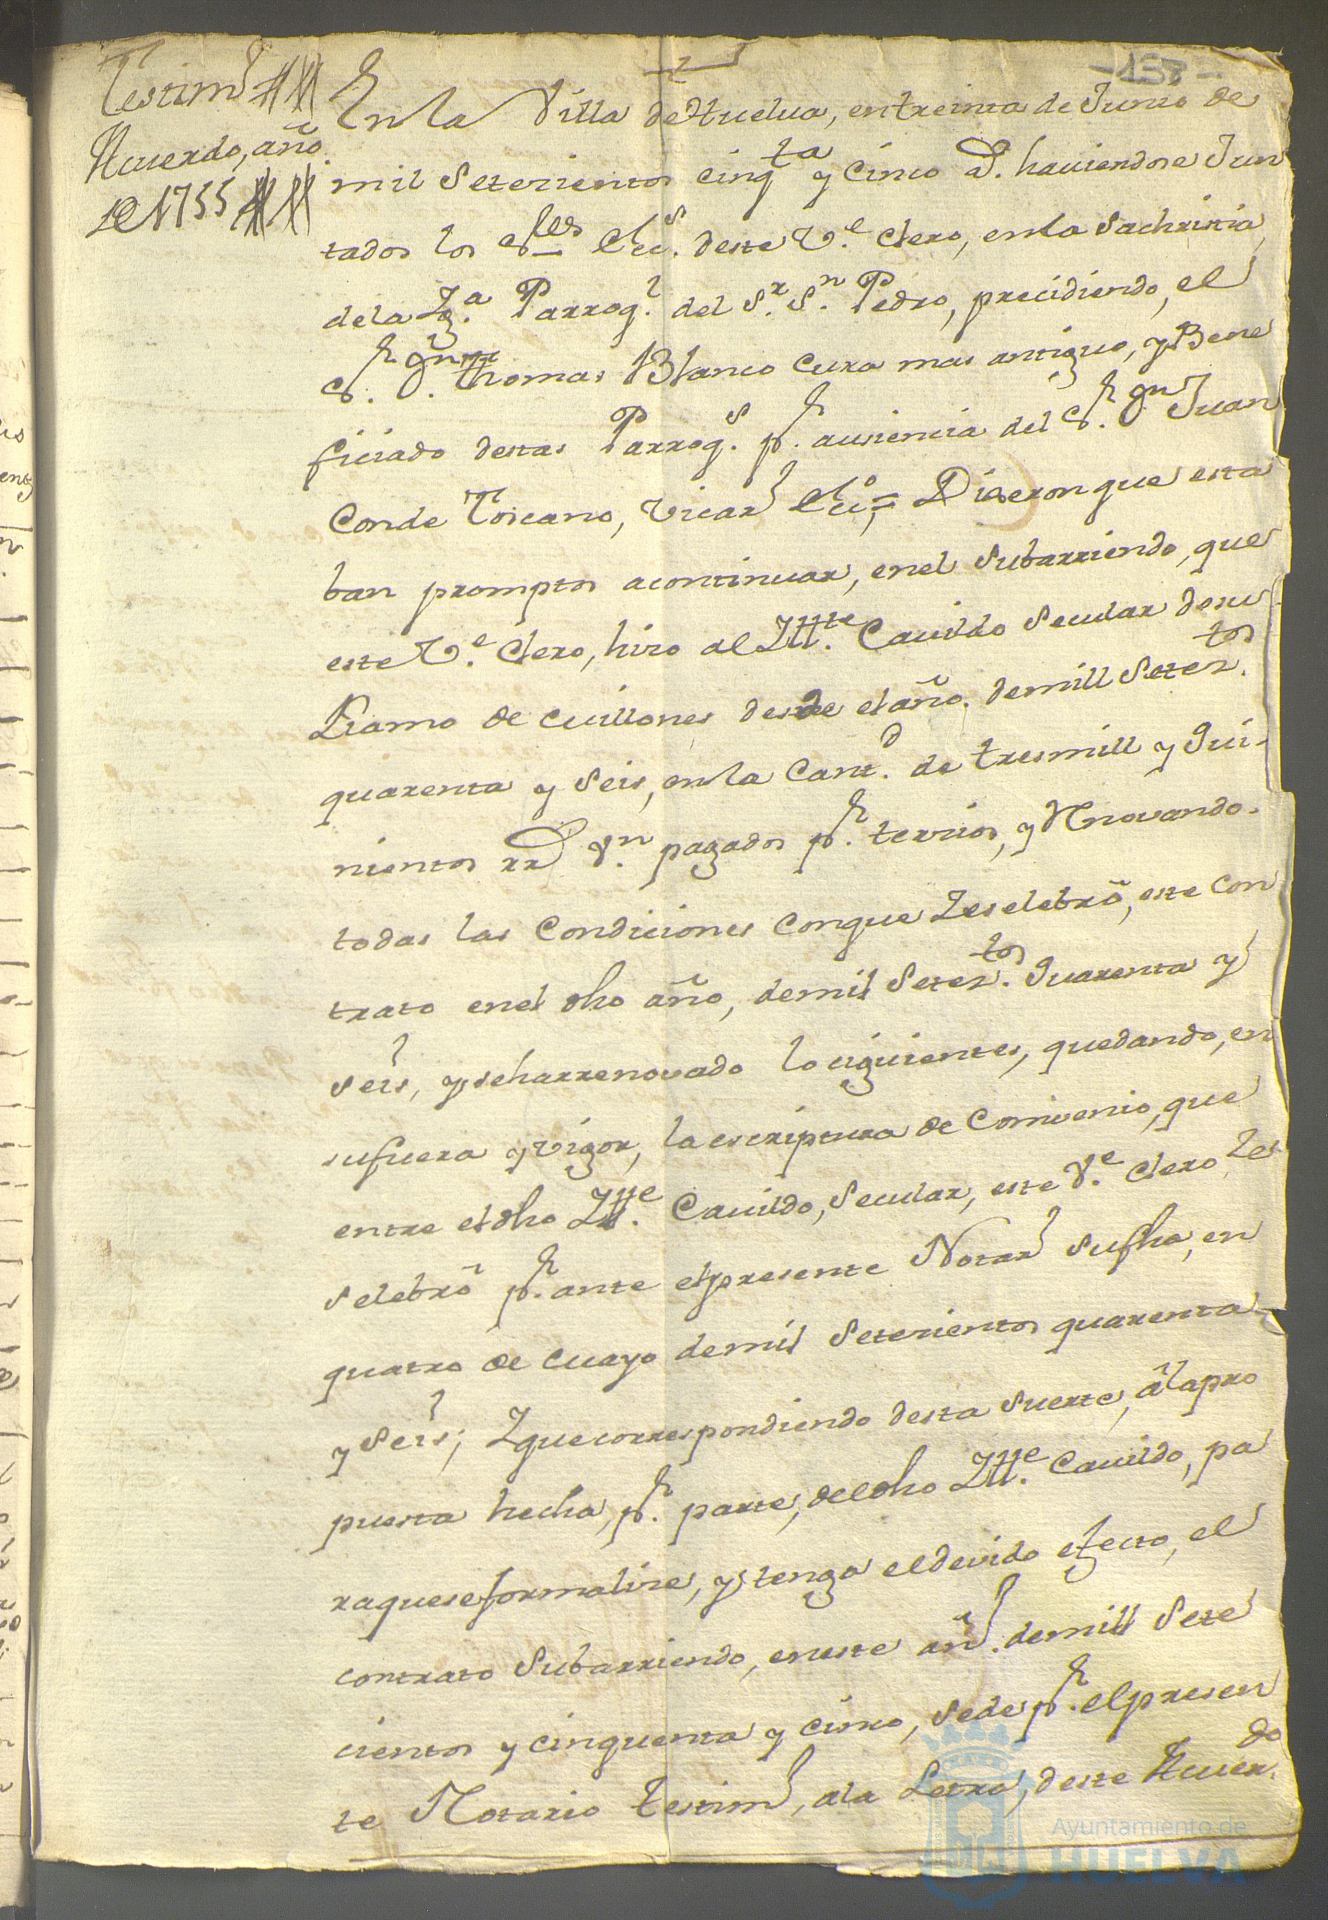 -138-
Testim.º
Acuerdo, año
de 1755
En la Villa de Huelua, en treinta de Junio de
mil Setezientos cinq.ta y cinco a.s haviendose Jun
tados los S.res Ecc.s deste V.e Clero, en la Sachristia
de la Yg.a Parroq.l del S.r S.n Pedro, precidiendo, el
S.r D.n Thomas Blanco Cura mas antiguo, y Bene
ficiado destas Parroq.s p.r ausiencia del S.r D.n Juan
Conde Toscano, Vicar.o Ecc.o = Dixeron que esta
ban promptos acontinuar, enel Subarriendo, que
este V.e Clero, hizo al Yll.te Cauildo Secular desu
Ramo de Millones desde el año. demill Setez.tos
quarenta y Seis, en la Cant.d de tresmill y qui-
nientos rr.s V.n pagados p.r tercios, y Rnovando-
todas las Condiciones Conque Zeselebró, este Con
trato enel dho año, demil Setez.tos quarenta y
Seis, y seharrenovado lo ciguientes, quedando, en
sufuera y vigor, la escriptura de Combenio, que
entre el dho Yll.e Cauildo, Secular, este V.e Clero Ze
Selebró p.r ante el presente Notar.o Sufha, en
quatro de Mayo demil Setezientos quarenta
y Seis; Yque correspondiendo desta Suerte, â la pro
puesta hecha, p.r parte, del dho Yll.e Cauildo, pa
raque se formalize, y tenga el devido efecto, el
contrato Subarriendo, eneste añ.o demill Sete
cientos y cinquenta y cinco, Sede p.r el presen
te Notario testim.o, ala Letra, deste Acuer.do
Ayuntamiento de
HUELVA